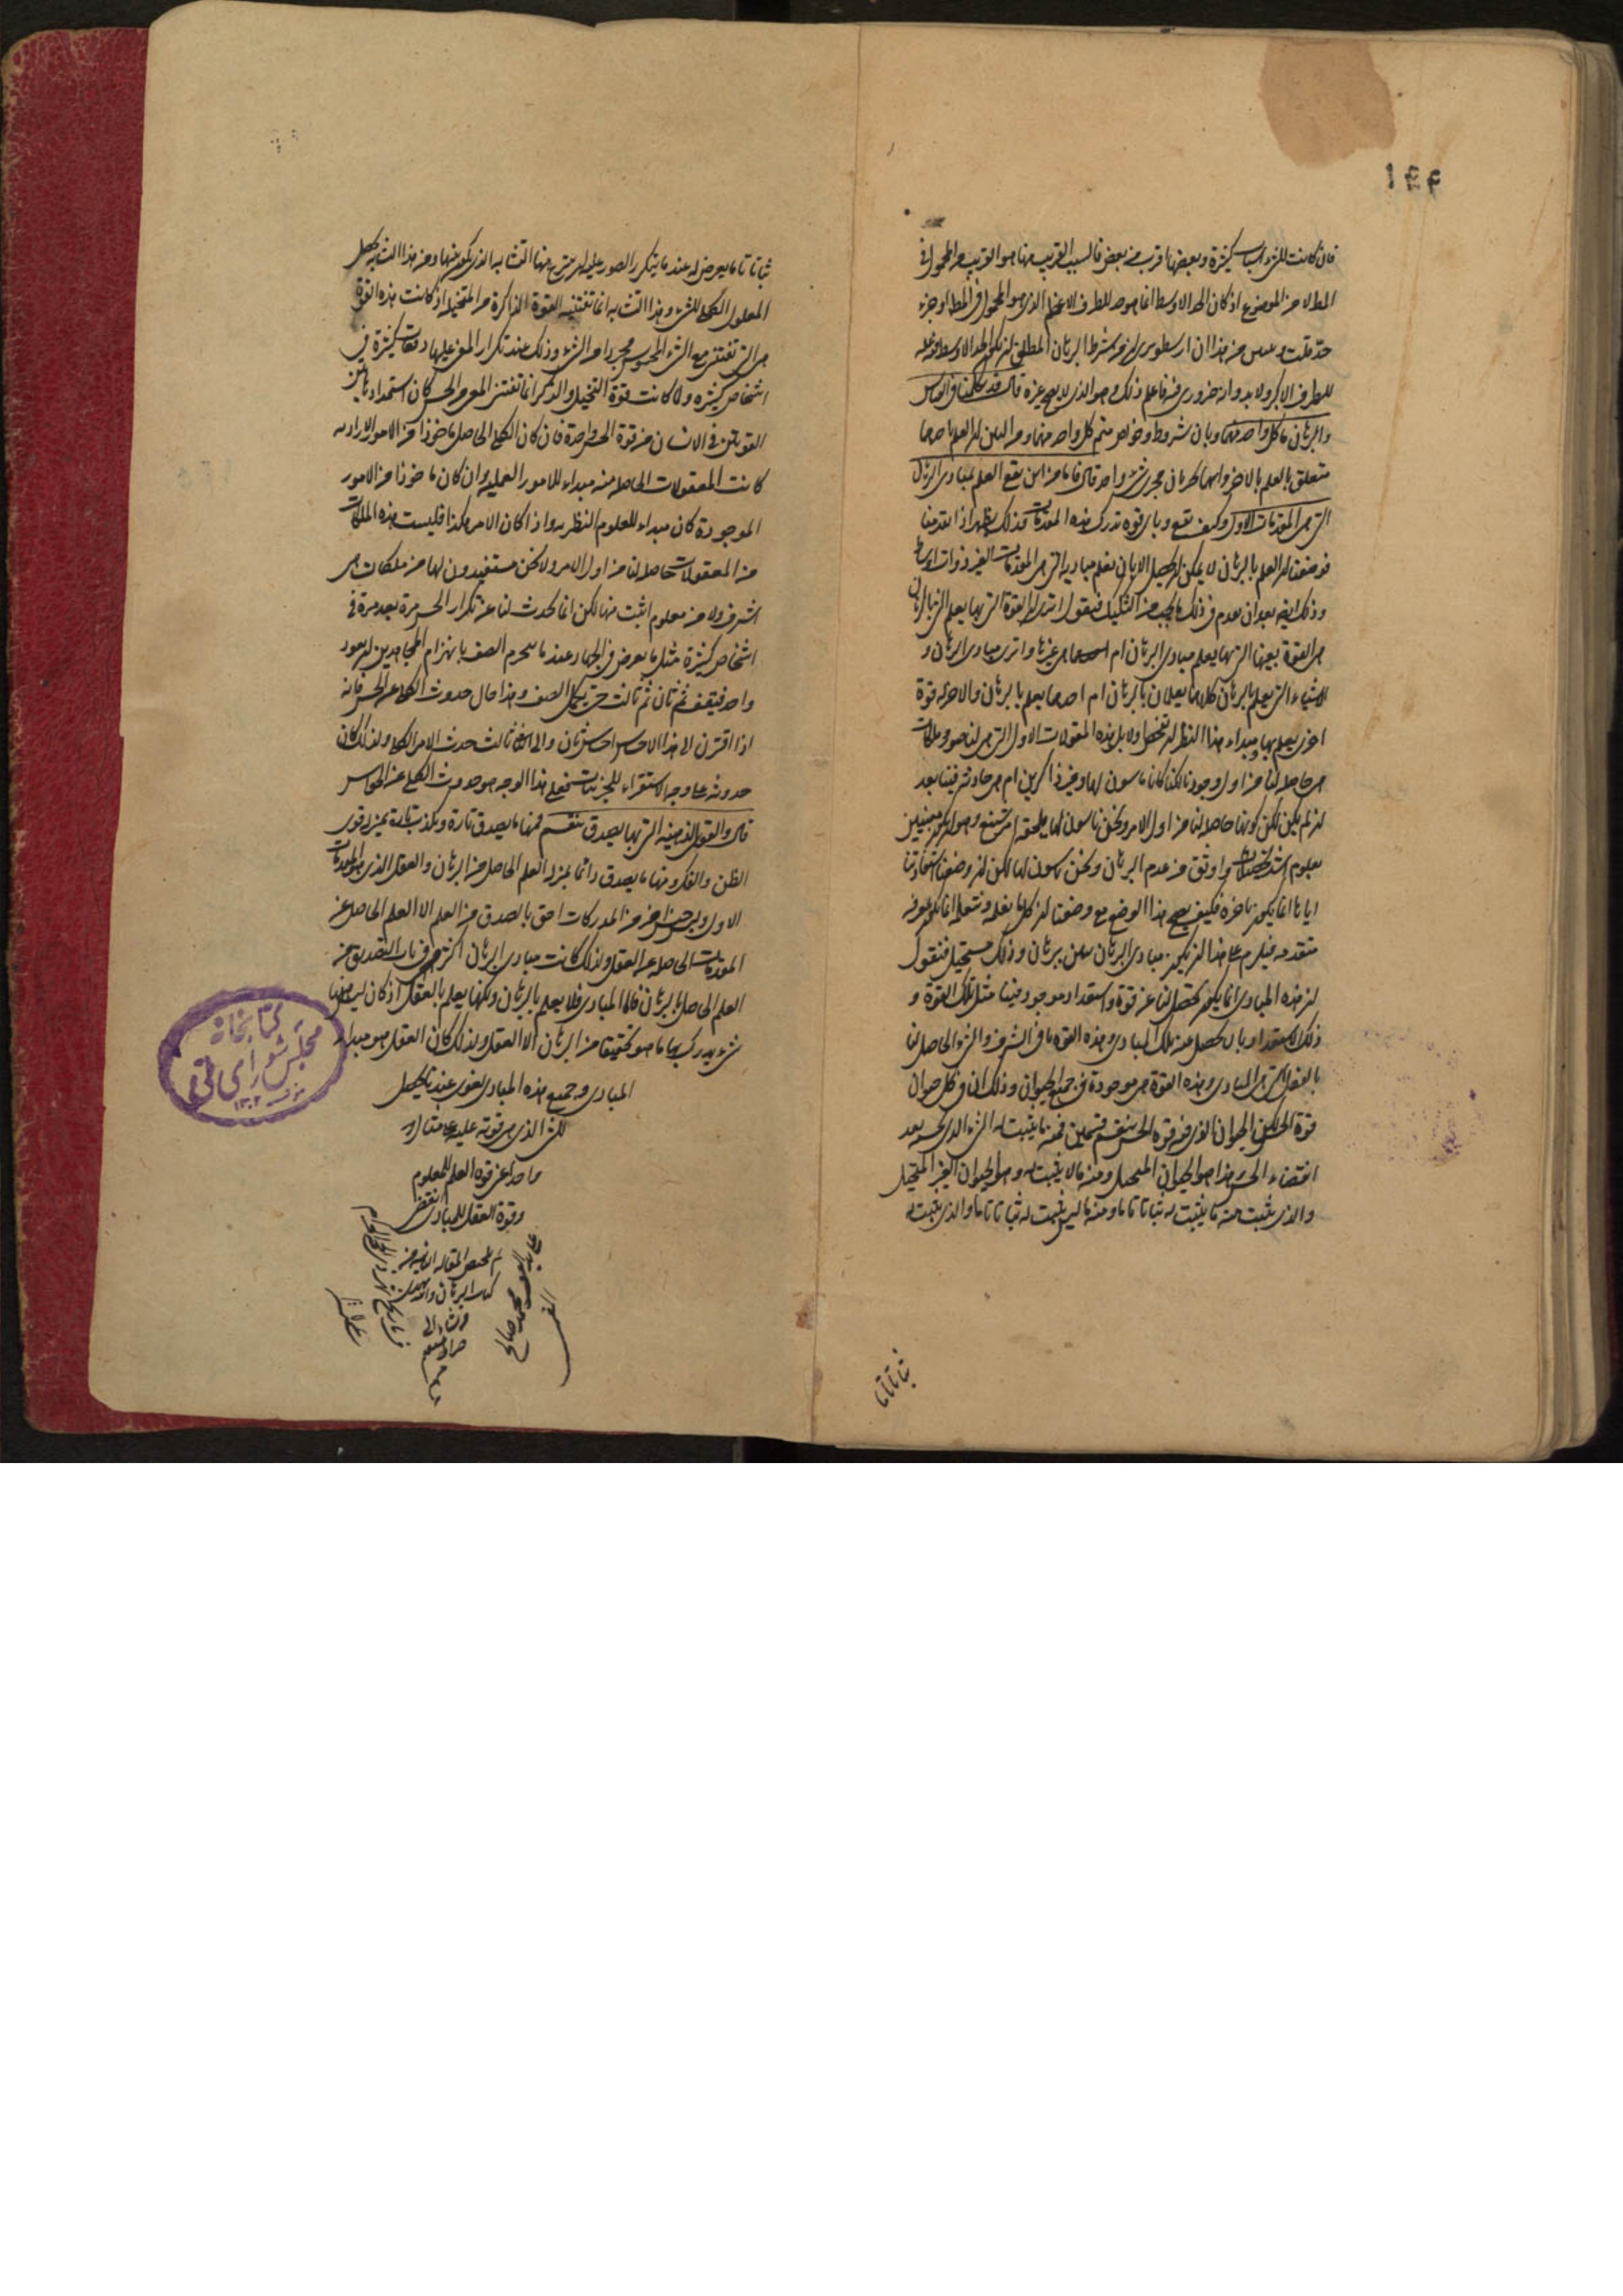 ١٤٤
فان كانت للشيء اسباب كثيرة وبعضها اقرب من بعض فالسبب القريب منها هو القريب من المحمول في
المطلوب من الموضوع اذ كان الحد الاوسط انما هو حد للطرف الاعظم الذي هو المحمول في المطلوب او جزء
حد قلت من هذا ان ارسطو يرى ان من شرط البرهان المطلق ان يكون الحد الاوسط فيه علة
للطرف الاكبر ولا بد وانه ضروري فيه فاعلم ذلك وهو الذي لا يصح غيره قال فقد تكلمنا في القياس
والبرهان ما كل واحد منهما وبان شروط وخواص متمم كل واحد منهما ومن البين ان العلم باحدهما
متعلق بالعلم بالاخر وانهما يجريان مجرى شيء واحد قال فاما من اين يقع العلم بمبادي البرهان
التي هي المقدمات الاول وكيف تقع وباي قوة تدرك هذه المقدمات فذلك يظهر اذا تقدمنا
فوضعنا ان العلم بالبرهان لا يمكن ان يحصل الا بان نعلم مباديه التي هي المقدمات الغير ذوات اوساط
وذلك ايضا بعد ان نقدم في ذلك ما يجب من التشكيك فنقول اترى القوة التي بها يعلم الشيء بالبرهان
هي القوة بعينها التي بها يعلم مبادي البرهان ام هي غيرها واترى مبادي البرهان و
الاشياء التي يعلم بالبرهان كلاهما يعلمان بالبرهان ام احدهما يعلم بالبرهان والاخر له قوة
اخرى يعلم بها ومبداء هذا النظر ان نفحص اولا هل هذه المعقولات الاول التي هي لنا صور وملكات
هي حاصلة لنا من اول وجودنا لكنا كنا ناسون لها وغير ذاكرين ام هي حادثة فينا بعد
ان لم يكن لكن كونها حاصلة لنا من اول الامر ونحن ناسون لها يلحقه امر شنيع وهو ان يكون معنيين
بعلوم اشد تحصيلا واوثق من عدم البرهان ونحن ناسون لها لكن ان وضعنا استفادتنا
اياها انما يكون باخرة فكيف يصح هذا الوضع مع وضعنا ان كل ما نعلمه ونتعلمه انما يكون بمعرفة
متقدمة فيلزم على هذا ان يكون مبادي البرهان تبين ببرهان وذلك مستحيل فنقول
ان هذه المبادي انما يكون تحصل لنا عن قوة واستعداد موجود فينا مثل تلك القوة و
ذلك الاستعداد بان يحصل عنه تلك المبادي وهذه القوة ما في الشرف والشيء الحاصل لنا
بالفعل التي هي المبادي وهذه القوة هي موجودة في جميع الحيوان وذلك ان في كل حيوان
قوة الحس لكن الحيوان الذي فيه قوة الحس ينقسم قسمين فمنه ما يثبت له الشيء الذي يحسه بعد
انقضاء الحس وهذا هو الحيوان المتخيل ومنه ما لا يثبت له وهو الحيوان الغير المتخيل
والذي يثبت منه ما يثبت له ثباتا تاما ومنه ما ليس يثبت له ثباتا تاما والذي يثبت له
ثباتا تاما
ثباتا تاما يعرض له عندما يتكرر الصور عليه ان ينتزع منها التشابه الذي يكون بينها ومن هذا التشابه يحصل
المعلول الكلي للشيء وهذا التشابه انما تقتنيه القوة الذاكرة من المتخيلة اذ كانت هذه القوة
هي التي تقتني معنى الشيء المحسوس مجردا من الشيء وذلك عند تكرار المعنى عليها دفعات كثيرة في
اشخاص كثيرة ولما كانت قوة التخيل والذكر انما تقتني المعنى من الحس كان استمداد هاتين
القوتين في الانسان من قوة الحس واحدة فان كان الكلي الحاصل ماخوذا من الامور الارادية
كانت المعقولات الحاصلة منه مبداء للامور العملية وان كان ماخوذا من الامور
الموجودة كان مبداء للعلوم النظرية واذا كان الامر هكذا فليست هذه الملكات
من المعقولات حاصلة لنا من اول الامر ولا نحن مستفيدون لها من ملكات هي
اشرف ولا من معلوم اثبت منها لكن انما تحدث لنا عن تكرار الحس مرة بعد مرة في
اشخاص كثيرة مثل ما يعرض في الجهاد عندما ينخرم الصف بانهزام المجاهدين ان يعود
واحد فيقف ثم ثان ثم ثالث حتى يكمل الصف وهذا حال حدوث الكلي عن الحس فانه
اذا اقترن الى هذا الاحساس احساس ثان والى الثاني ثالث حدث الامر الكلي ولذلك كان
حدوثه على وجه الاستقراء للجزئيات فعلى هذا الوجه هو حدوث الكلي عن الحواس
قال والقوى الذهنية التي بها يصدق تنقسم فمنها ما يصدق تارة ويكذب تارة بمنزلة قوى
الظن والفكر ومنها ما يصدق دائما بمنزلة العلم الحاصل من البرهان والعقل الذي هو للمقدمات
الاول وليس جنس اخر من المدركات احق بالصدق من العلم الا العلم الحاصل عن
المقدمات الحاصلة عن العقل ولذلك كانت مبادي البرهان اكثر هي في باب التصديق من
العلم الحاصل بالبرهان فاما المبادي فلا يعلم بالبرهان ولكنها يعلم بالعقل اذ كان ليس هنا
شيء يدرك بها ما هو تحقيقا من البرهان الا العقل ولذلك كان العقل هو مبداء
المبادي وجميع هذه المبادي عندنا يحصل
للشيء الذي هي قوته عليه على مثال
واحد اعني قوة العلم للمعلوم
وقوة العقل للمبادي انقضى
تم تلخيص المقالة الثانية من
كتاب البرهان
كتابخانه
مجلس شورای ملی
١٣٠٢